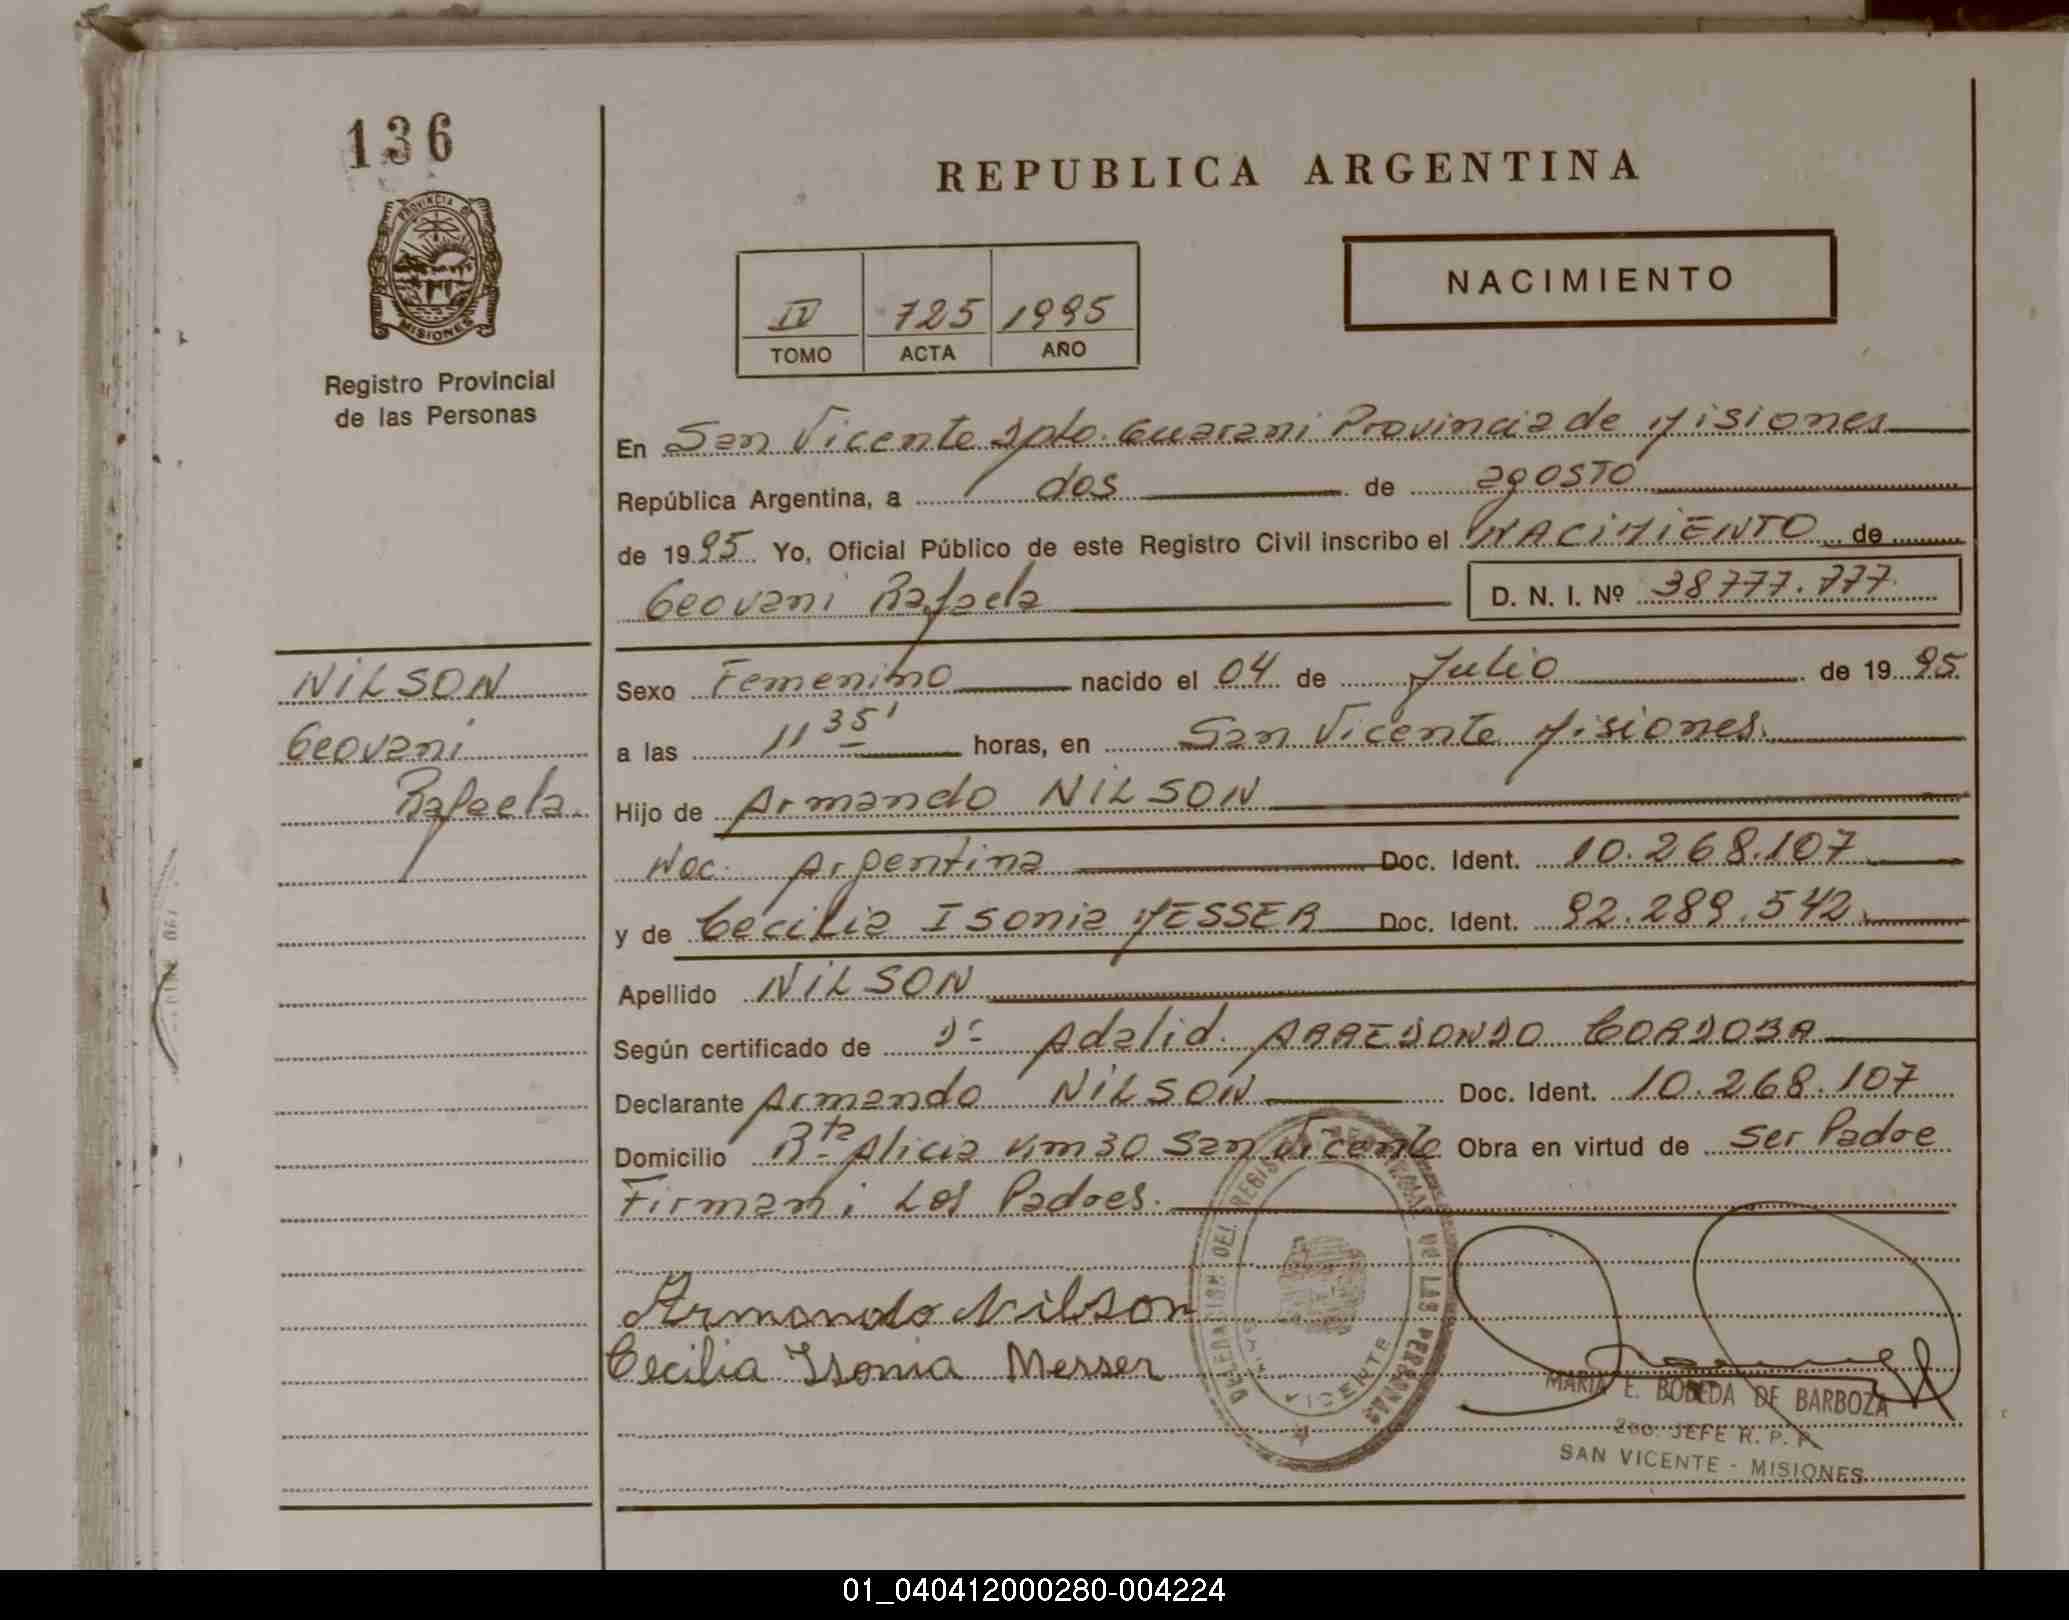 136
REPUBLICA ARGENTINA
PROVINCIA DE
MISIONES
Registro Provincial
de las Personas
NACIMIENTO
IV 725 1995
TOMO ACTA AÑO
En San Vicente Dpto. Guarani Provincia de Misiones
República Argentina, a dos de agosto
de 1995 Yo, Oficial Público de este Registro Civil inscribo el NACIMIENTO de
Geovani Rafaela D. N. I. Nº 38777.777
NILSON
Geovani
Rafaela.
Sexo Femenino nacido el 04 de Julio de 1995.
a las 11 35' horas, en San Vicente Misiones.
Hijo de Armando NILSON
Nac. Argentina Doc. Ident. 10.268.107
y de Cecilia Isonia MESSER Doc. Ident. 92.289.542.
Apellido NILSON
Según certificado de Dr Adalid. ARREDONDO CORDOBA
Declarante Armando NILSON Doc. Ident. 10.268.107
Domicilio Rta Alicia Km 30 San Vicente Obra en virtud de ser Padre
Firman: Los Padres.
Armando Nilson
Cecilia Isonia Messer
DEL REGISTRO DE LAS PERSONAS
VICENTE
MARIA E. BOBEDA DE BARBOZA
2do. JEFE R. P. P.
SAN VICENTE - MISIONES
01_040412000280-004224